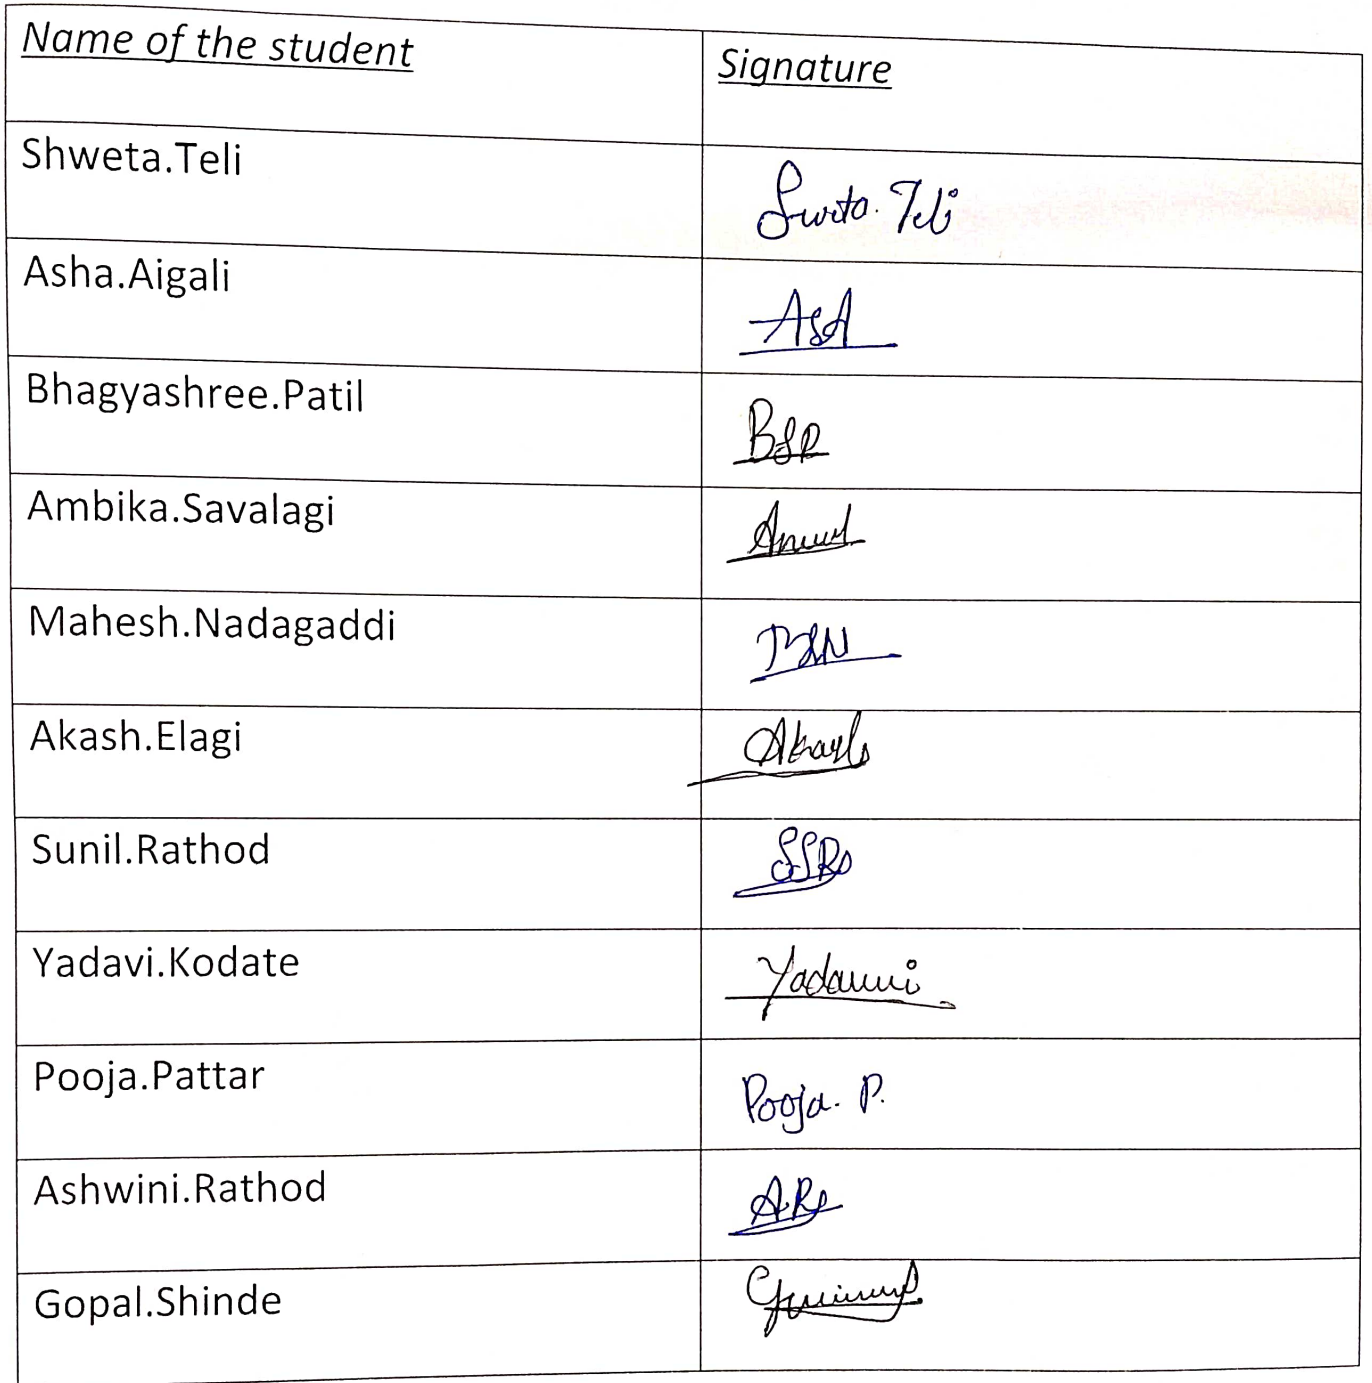 Name of the student
Signature
Shweta.Teli
Sweta. Teli
Asha.Aigali
AsA
Bhagyashree.Patil
BSP
Ambika.Savalagi
Mahesh.Nadagaddi
Akash.Elagi
Akash
Sunil.Rathod
SSR
Yadavi.Kodate
Pooja.Pattar
Pooja. P.
Ashwini.Rathod
Gopal.Shinde